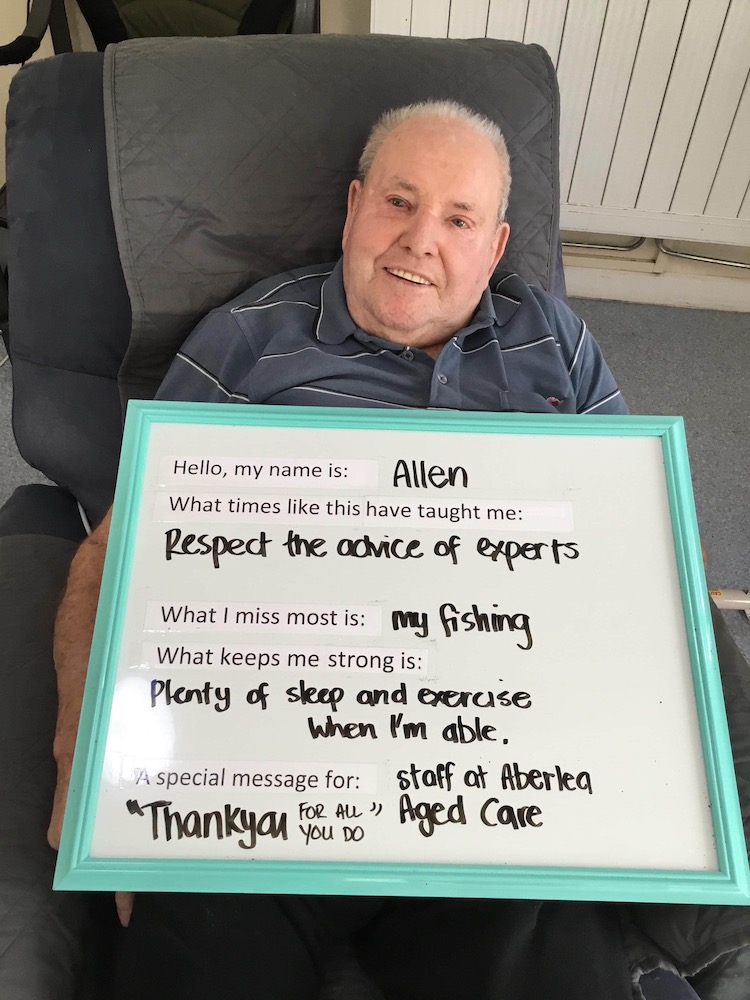 Hello, my name is: Allen
What times like this have taught me:
Respect the advice of experts
What I miss most is: my fishing
What keeps me strong is:
Plenty of sleep and exercise
when I'm able.
A special message for: staff at Aberlea
Aged Care
"Thankyou FOR ALL YOU DO"